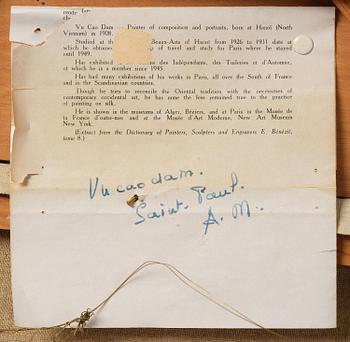 Vu Cao Dam — Painter of composition and portraits, born at Hanoi (North
Vietnam) in 1908.
Studied at the Beaux-Arts of Hanoi from 1926 to 1931 date at
which he obtained of travel and study for Paris where he stayed
until 1949.
Has exhibited des Indépendants, des Tuileries et d'Automne,
of which he is a member since 1945.
Has had many exhibitions of his works in Paris, all over the South of France
and in the Scandinavian countries.
Though he tries to reconcile the Oriental tradition with the necessities of
contemporary occidental art, he has none the less remained true to the practice
of painting on silk.
He is shown in the museums of Alger, Béziers, and at Paris in the Musée de
la France d'outre-mer and at the Musée d'Art Moderne, New Art Museum
New York.
(Extract from the Dictionary of Painters, Sculptors and Engravers E. Bénézit,
tome 8.)
Vu cao dam.
Saint. Paul.
A. M.